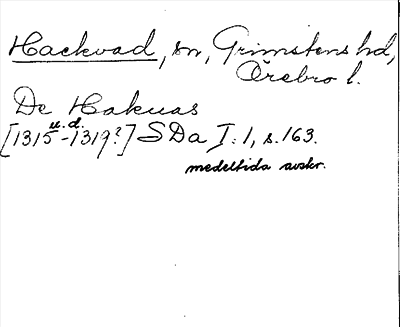 Hackvad, sn, Grimstens hd,
Örebro l.
De Hakuas
u.d.
[1315-1319?] SDa I:1, s.163.
medeltida avskr.